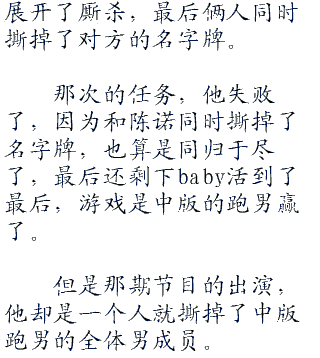 展开了厮杀，最后俩人同时
撕掉了对方的名字牌。
那次的任务，他失败
了，因为和陈诺同时撕掉了
名字牌，也算是同归于尽
了，最后还剩下baby活到了
最后，游戏是中版的跑男赢
了。
但是那期节目的出演，
他却是一个人就撕掉了中版
跑男的全体男成员。